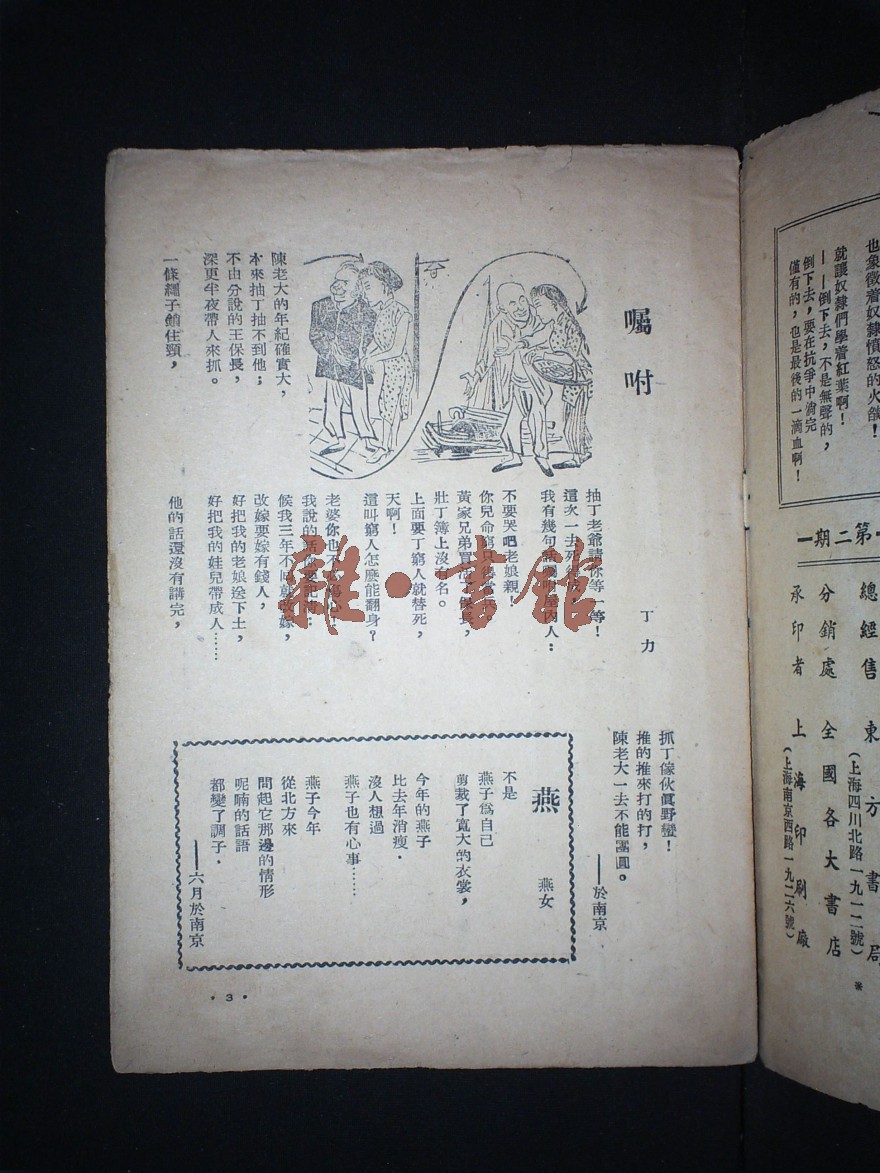 也象徵着奴隸憤怒的火燄！
就讓奴隸們學着紅葉啊！
——倒下去，不是無聲的，
倒下去，要在抗爭中
僅有的，也是最後的一滴血啊！
第二期
總經售 東方書局
（上海四川北路一九一二號）
分銷處 全國各大書店
承印者 上海印刷廠
（上海南京西路一九二六號）
囑咐
丁力
陳老大的年紀確實大，
本來抽丁抽不到他；
不由分說的王保長，
深更半夜帶人來抓。
一條繩子住頸，
抽丁老爺請你等一等！
這次一去死
我有幾句話
人：
不要哭吧老娘親！
你兒命窮
黃家兄弟
保長，
壯丁簿上沒有名。
上面要丁窮人就替死，
天啊！
這叫窮人怎麽能翻身？
老婆你也不
心，
我說的話
候我三年不回就改嫁，
改嫁要嫁有錢人，
好把我的老娘送下土，
好把我的娃兒帶成人……
他的話還沒有講完，
抓丁傢伙眞野蠻！
推的推來打的打，
陳老大一去不能團圓。
——於南京
燕
燕女
不是
燕子爲自己
剪裁了寬大的衣裳，
今年的燕子
比去年消瘦．
沒人想過
燕子也有心事……
燕子今年
從北方來
問起它那邊的情形
呢喃的話語
都變了調子．
——六月於南京
·3·
雜·書館